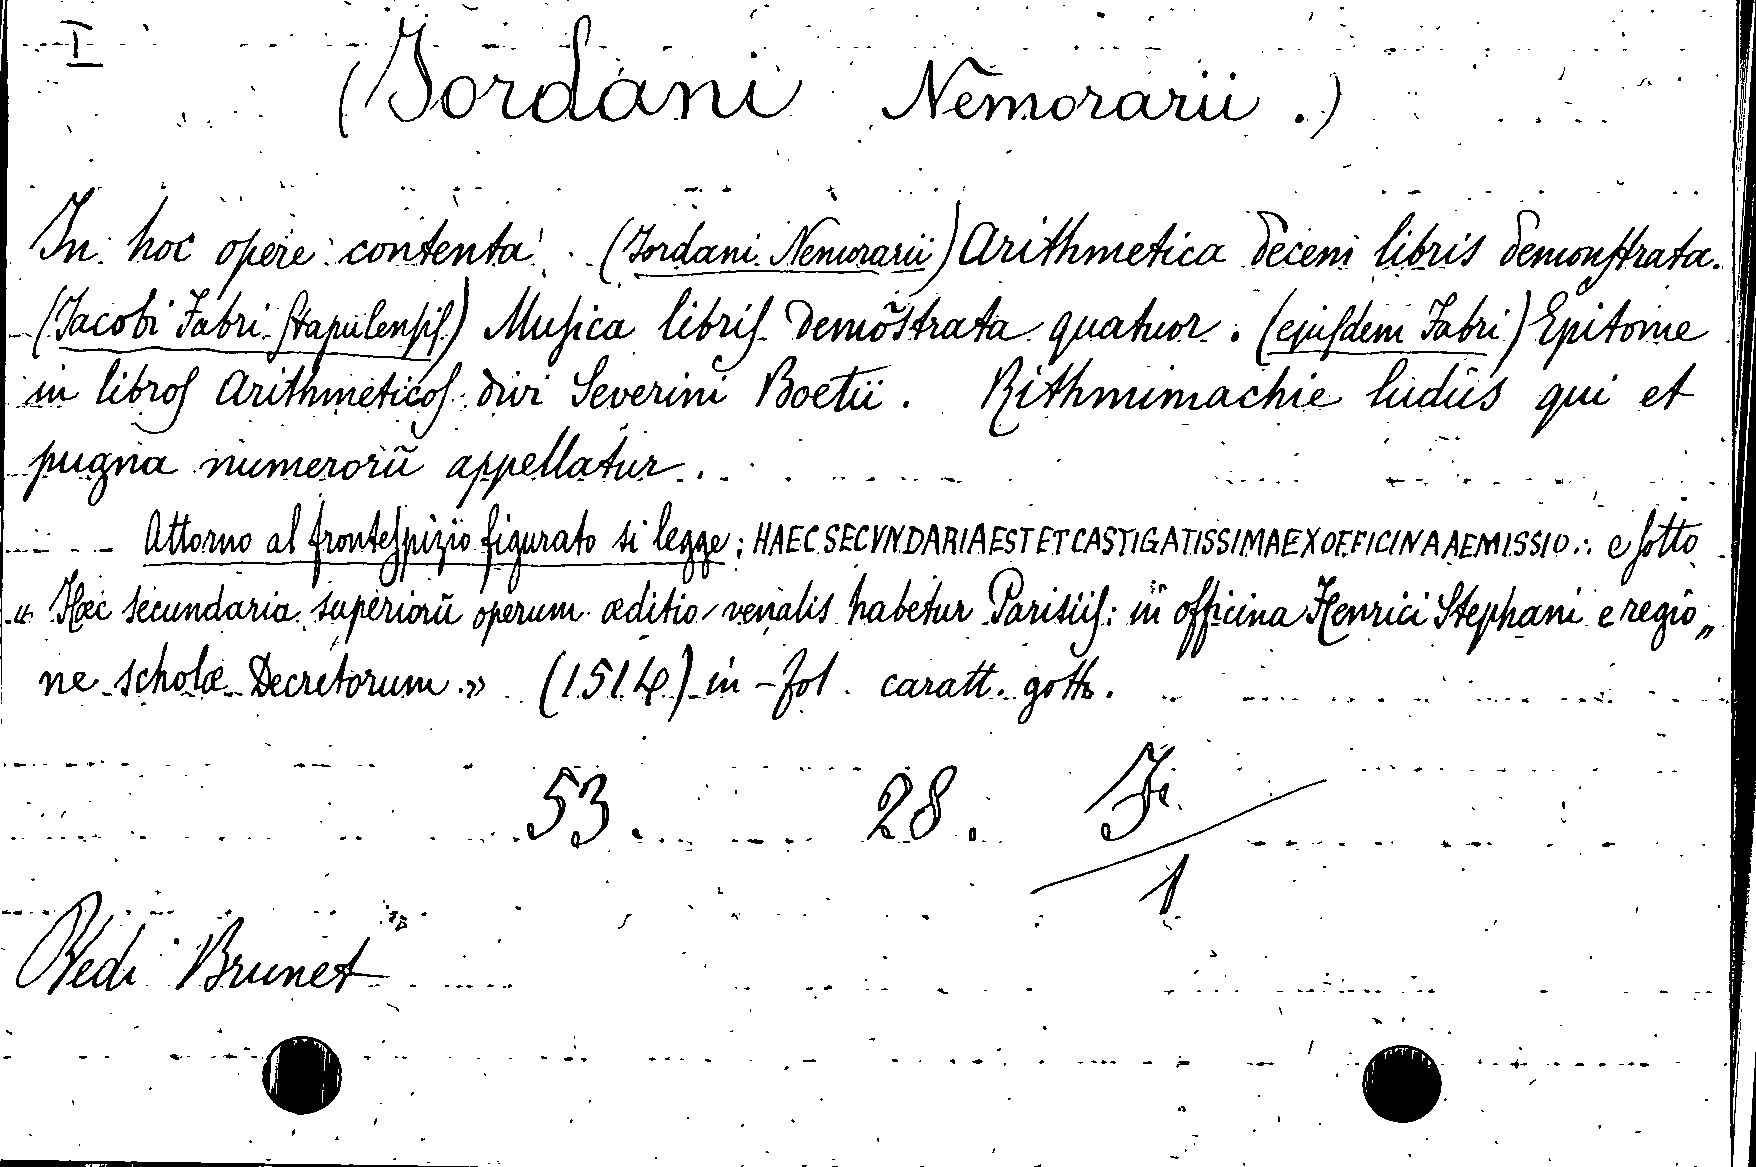 I
(Jordani Nemorarii.)
In hoc opere contenta. (Jordani Nemorarii) Arithmetica decem libris demonſtrata.
(Jacobi Fabri ſtapulenſiſ) Muſica libriſ demõstrata quatuor. (ejuſdem Fabri) Epitome
in libroſ Arithmeticoſ divi Severini Boetii. Rithmimachie ludus qui et
pugna numerorũ appellatur.
Attorno al fronteſpizio figurato si legge: HAEC SECVNDARIA EST ET CASTIGATISSIMA EX OFFICINA AEMISSIO.: e ſotto
« Hæc secundaria superiorũ operum æditio venalis habetur Parisiiſ: in officina Henrici Stephani e regio„
ne scholæ Decretorum.» (1514) in-fol. caratt. goth.
53. 28. J.
1
Vedi Brunet